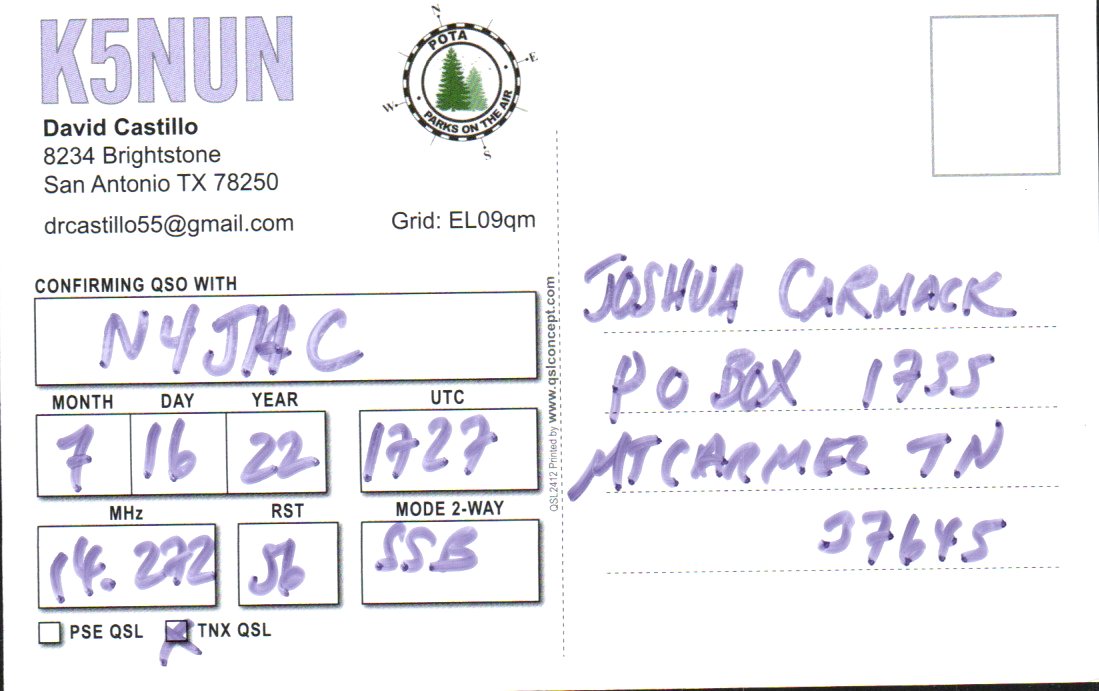 K5NUN
David Castillo
8234 Brightstone
San Antonio TX 78250
drcastillo55@gmail.com
Grid: EL09qm
N
E
S
W
POTA
PARKS ON THE AIR
CONFIRMING QSO WITH
N4JHC
MONTH DAY YEAR UTC
7 16 22 1727
MHz RST MODE 2-WAY
14.272 56 SSB
PSE QSL TNX QSL
QSL2412 Printed by www.qslconcept.com
JOSHUA CARMACK
PO BOX 1735
MT CARMEL TN
37645